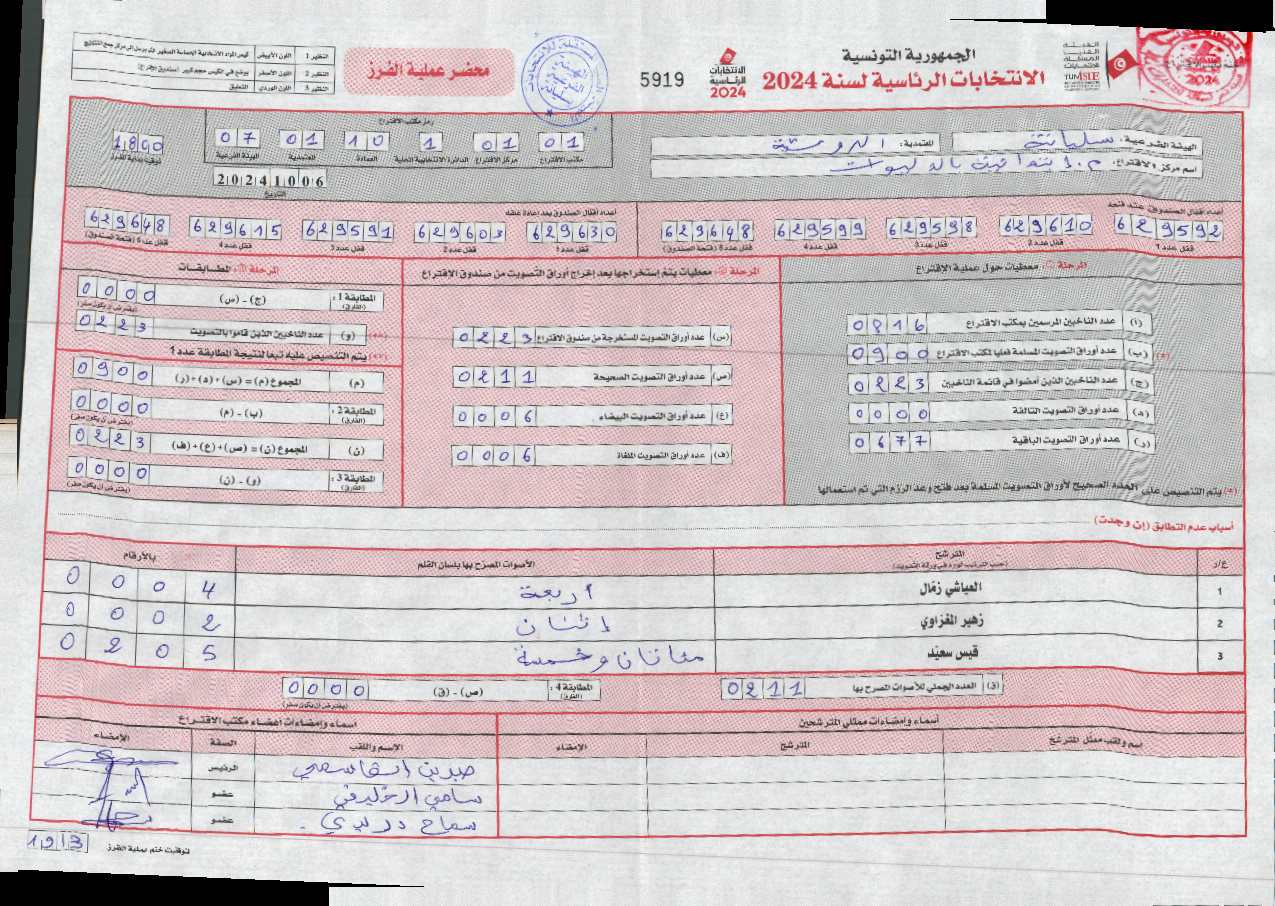 الجمهورية التونسية
الانتخابات الرئاسية لسنة 2024
الانتخابات الرئاسية 2024
5919
محضر عملية الفرز
النظير 1 اللون الأبيض
النظير 2 اللون الأصفر يوضع في الكيس حجم كبير (صندوق الاقتراع)
النظير 3 اللون الوردي التعليق
الهيئة الفرعية: سليانة
المعتمدية: الروحية
اسم مركز الاقتراع:
رمز مكتب الاقتراع
01 01 1 10 01 07
مكتب الاقتراع مركز الاقتراع الدائرة الانتخابية المحلية العمادة المعتمدية الهيئة الفرعية
20241006
التاريخ
1800
توقيت بداية الفرز
أعداد أقفال الصندوق عند فتحه
629592 629610 629598 629599 629648
قفل عدد 1 قفل عدد 2 قفل عدد 3 قفل عدد 4 قفل عدد 5 (فتحة الصندوق)
أعداد أقفال الصندوق بعد إعادة غلقه
629630 629603 629591 629615 629648
قفل عدد 1 قفل عدد 2 قفل عدد 3 قفل عدد 4 قفل عدد 5 (فتحة الصندوق)
المرحلة 1: معطيات حول عملية الاقتراع
(أ) عدد الناخبين المرسمين بمكتب الاقتراع 0816
(*) (ب) عدد أوراق التصويت المسلمة فعليا لمكتب الاقتراع 0900
(ج) عدد الناخبين الذين أمضوا في قائمة الناخبين 0223
(د) عدد أوراق التصويت التالفة 0000
(ر) عدد أوراق التصويت الباقية 0677
(*) يتم التنصيص على العدد الصحيح لأوراق التصويت المسلمة بعد فتح وعد الرزم التي تم استعمالها
المرحلة 2: معطيات يتم إستخراجها بعد إخراج أوراق التصويت من صندوق الإقتراع
(س) عدد أوراق التصويت المستخرجة من صندوق الاقتراع 0223
(ص) عدد أوراق التصويت الصحيحة 0211
(ع) عدد أوراق التصويت البيضاء 0006
(ف) عدد أوراق التصويت الملغاة 0006
المرحلة 3: المطابقات
المطابقة 1: (الفارق) (ج) - (س) 0000
(يفترض أن يكون صفر)
(**) (و) عدد الناخبين الذين قاموا بالتصويت 0223
(**) يتم التنصيص عليه تبعا لنتيجة المطابقة عدد 1
(م) المجموع (م) = (س) + (د) + (ر) 0900
المطابقة 2: (الفارق) (ب) - (م) 0000
(يفترض أن يكون صفر)
(ن) المجموع (ن) = (ص) + (ع) + (ف) 0223
المطابقة 3: (الفارق) (و) - (ن) 0000
(يفترض أن يكون صفر)
أسباب عدم التطابق (إن وجدت)
ع/ر المترشح الأصوات المصرح بها بلسان القلم بالأرقام
(حسب الترتيب الوارد في ورقة التصويت)
1 العياشي زمّال أربعة 0004
2 زهير المغزاوي إثنان 0002
3 قيس سعيّد مئتان وخمسة 0205
(ق) العدد الجملي للأصوات المصرح بها 0211
المطابقة 4: (الفارق) (ص) - (ق) 0000
(يفترض أن يكون صفر)
أسماء وإمضاءات ممثلي المترشحين
اسم ولقب ممثل المترشح المترشح الإمضاء
أسماء وإمضاءات أعضاء مكتب الاقتراع
الاسم واللقب الصفة الإمضاء
الرئيس
سامي الخليفي عضو
سماح دريدي عضو
توقيت ختم عملية الفرز 1913